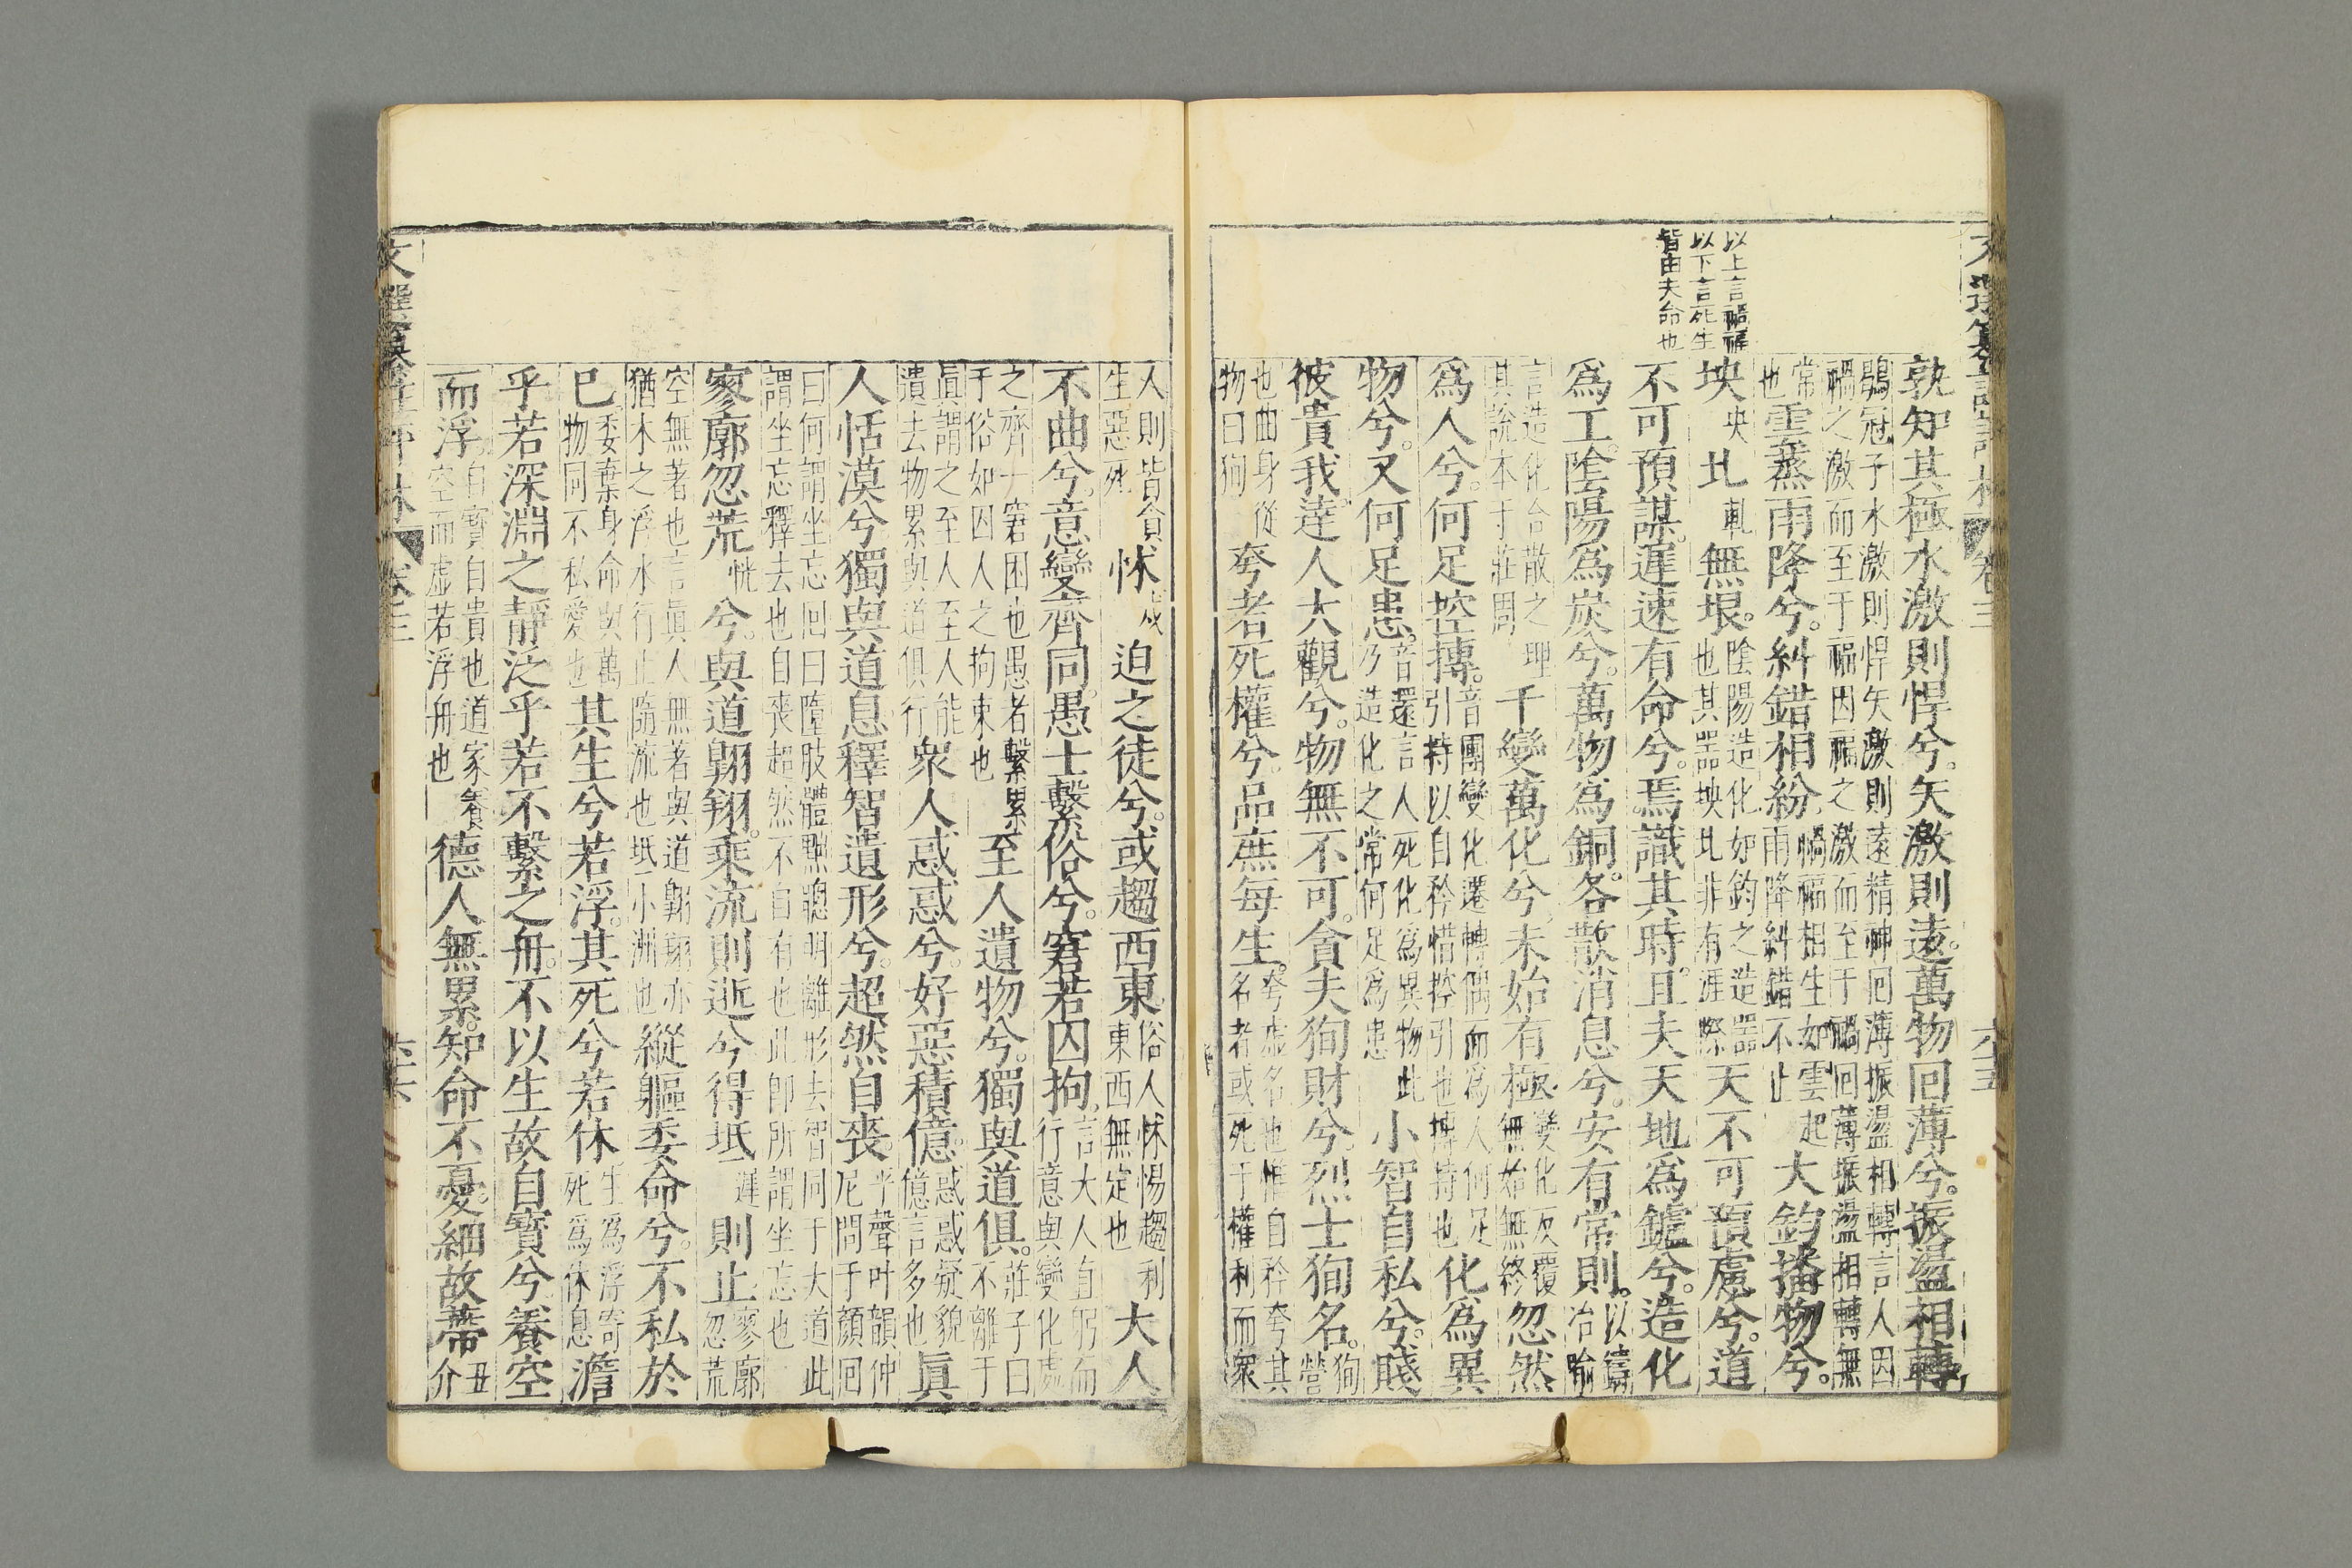 文選纂註評林 卷三 六十五
以上言禍福
以下言死生
皆由夫命也
孰知其極水激則悍兮。矢激則遠。萬物回薄兮。振盪相轉
鶡冠子水激則悍矢激則遠精神回薄振盪相轉言人因
禍之激而至于福因福之激而至于禍回薄振盪相轉無
常也雲蒸雨降兮。糾錯相紛禍福相生如雲起雨降糾錯不止大鈞播物兮。
坱央圠軋無垠。陰陽造化如鈞之造器也其器坱圠非有涯際天不可預慮兮。道
不可預謀。遲速有命兮。焉識其時。且夫天地爲鑪兮。造化
爲工。陰陽爲炭兮。萬物爲銅。合散消息兮。安有常則。以鑄冶喻
言造化合散之理其說本于莊周千變萬化兮。未始有極。變化反覆無始無終忽然
爲人兮。何足控摶。音團變化遷轉偶而爲人何足引持以自矜惜控引也摶持也化爲異
物兮。又何足患。音還言人死化爲異物此乃造化之常何足爲患小智自私兮。賤
彼貴我。達人大觀兮。物無不可。貪夫狥財兮。烈士狥名。狥營
也曲身從物曰狥夸者死權兮。品庶每生。夸虛名也惟自矜夸其名者或死于權利而衆
人則皆貪生惡死怵戍迫之徒兮。或趨西東。俗人怵惕趨利東西無定也大人
不曲兮。意變齊同。愚士繫俗兮。窘若囚拘。言大人直躬而行意與變化
之齊一窘困也愚者繫累于俗如囚人之拘束也至人遺物兮。獨與道俱。莊子曰不離于
眞謂之至人至人能遺去物累與道俱行衆人惑惑兮。好惡積億。惑惑疑貌億言多也眞
人恬漠兮獨與道息釋智遺形兮。超然自喪。平聲叶韻仲尼問于顏回
曰何謂坐忘回曰隳肢體黜聰明離形去智同于大道此
謂坐忘釋去也自喪超然不自有也此即所謂坐忘也
寥廓忽荒恍兮。與道翺翔。乘流則逝兮得坻遲則止寥廓忽荒
空無著也言眞人無著與道翺翔亦猶木之浮水行止隨流也坻小洲也縱軀委命兮。不私於
已委棄身命與萬物同不私愛也其生兮若浮。其死兮若休生爲浮寄死爲休息澹
乎若深淵之靜泛乎若不繫之舟。不以生故自寶兮養空
而浮。自寶自貴也道家養空而虛若浮舟也德人無累。知命不憂。細故蔕丑介
文選纂註評林 卷三 六十六